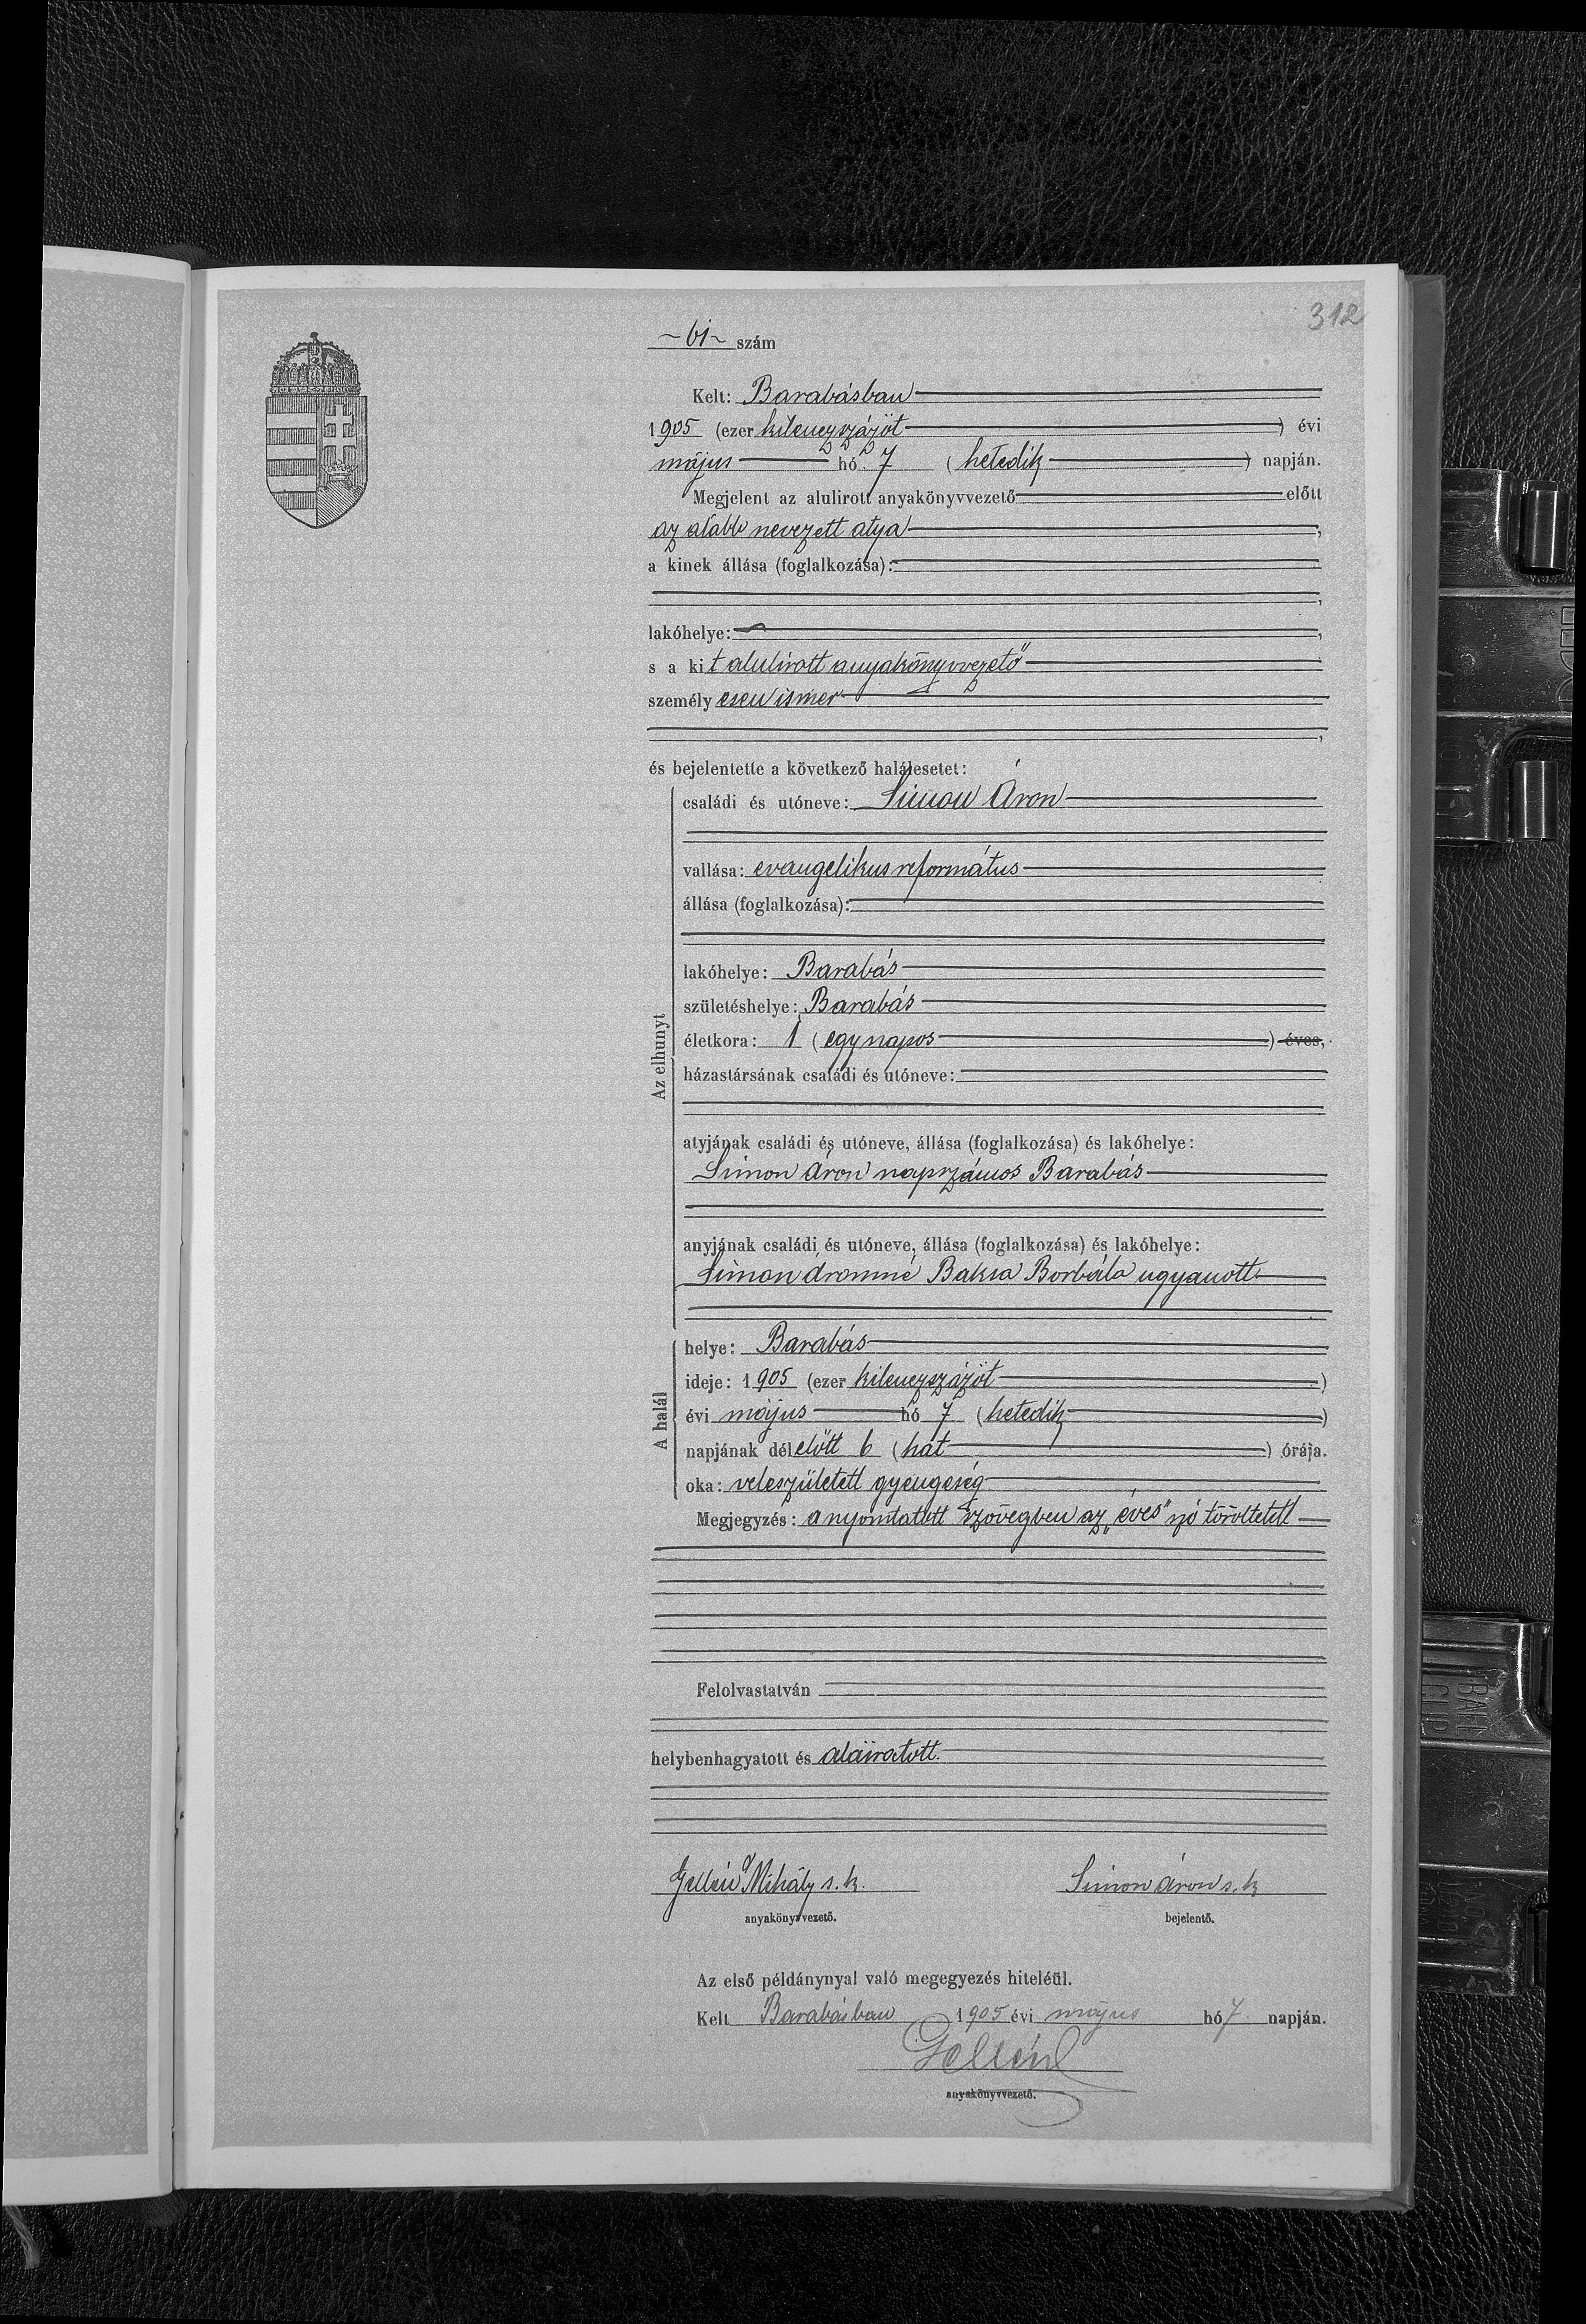 312
~61~ szám
Kelt: Barabásban
1905 (ezer kilenczszázöt) évi
május hó 7 (hetedik) napján.
Megjelent az alulirott anyakönyvvezető előtt
az alább nevezett atya,
a kinek állása (foglalkozása):
,
lakóhelye: ,
s a kit alulirott anyakönyvvezető
személyesen ismer
,
és bejelentette a következő halálesetet:
Az elhunyt
családi és utóneve: Simon Áron
vallása: evangelikus református
állása (foglalkozása):
lakóhelye: Barabás
születéshelye: Barabás
életkora: 1 (egy napos) éves,
házastársának családi és utóneve:
atyjának családi és utóneve, állása (foglalkozása) és lakóhelye:
Simon Áron napszámos Barabás
anyjának családi és utóneve, állása (foglalkozása) és lakóhelye:
Simon Áronné Baksa Borbála ugyanott
A halál
helye: Barabás
ideje: 1905 (ezer kilenczszázöt)
évi május hó 7 (hetedik)
napjának délelőtt 6 (hat) órája.
oka: veleszületett gyengeség
Megjegyzés: a nyomtatott szövegben az „éves" szó töröltetett
Felolvastatván
helybenhagyatott és aláiratott.
Gellén Mihály s.k. Simon Áron s.k
anyakönyvvezető. bejelentő.
Az első példánynyal való megegyezés hiteléül.
Kelt Barabásban 1905 évi május hó 7. napján.
Gellén
anyakönyvvezető.
BALL
CLIP